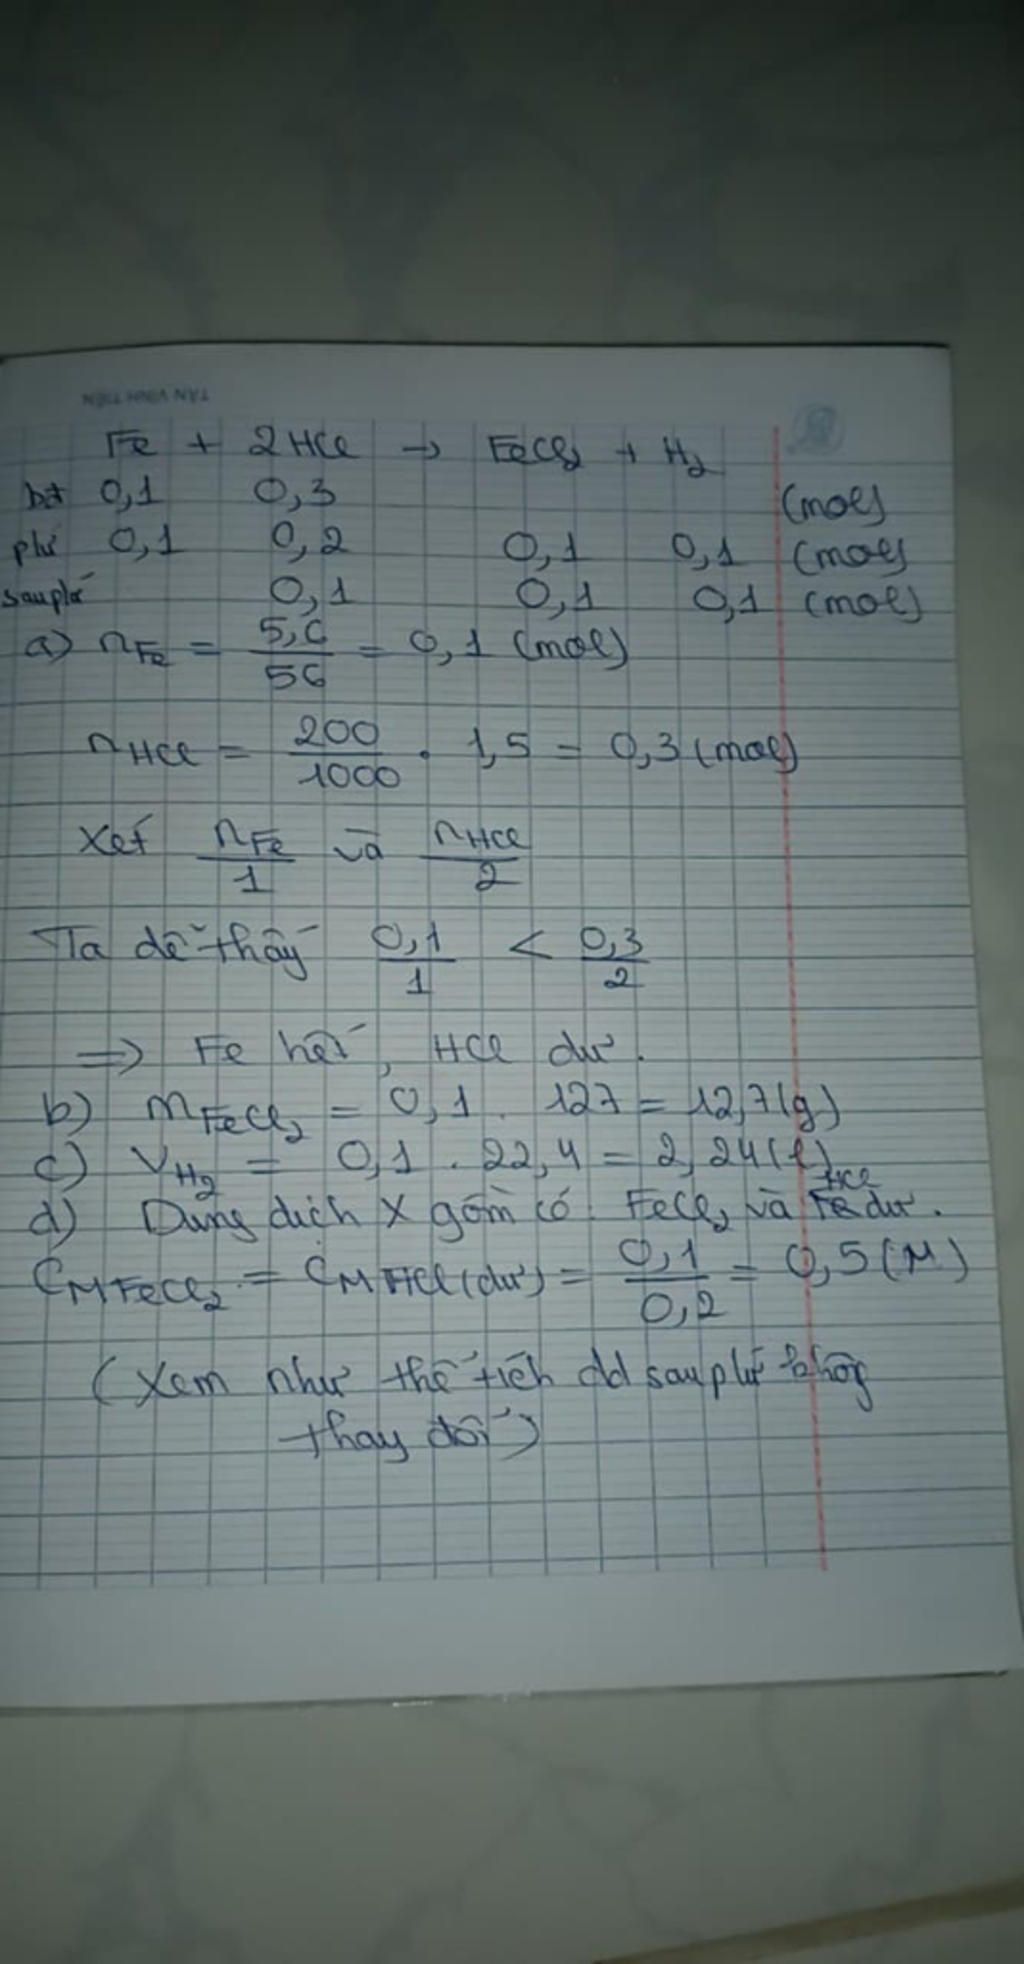 TÂN VĨNH TIẾN
Fe + 2HCl → FeCl₂ + H₂
bđ 0,1 0,3 (mol)
pứ 0,1 0,2 0,1 0,1 (mol)
sau pứ 0,1 0,1 0,1 (mol)
a) nFe = 5,6/56 = 0,1 (mol)
nHCl = 200/1000 . 1,5 = 0,3 (mol)
Xét nFe/1 và nHCl/2
Ta dễ thấy 0,1/1 < 0,3/2
=> Fe hết, HCl dư.
b) mFeCl₂ = 0,1 . 127 = 12,7 (g)
c) VH₂ = 0,1 . 22,4 = 2,24 (l)
d) Dung dịch X gồm có FeCl₂ và HCl dư.
CM FeCl₂ = CM HCl (dư) = 0,1/0,2 = 0,5 (M)
(Xem như thể tích dd sau pứ không
thay đổi)